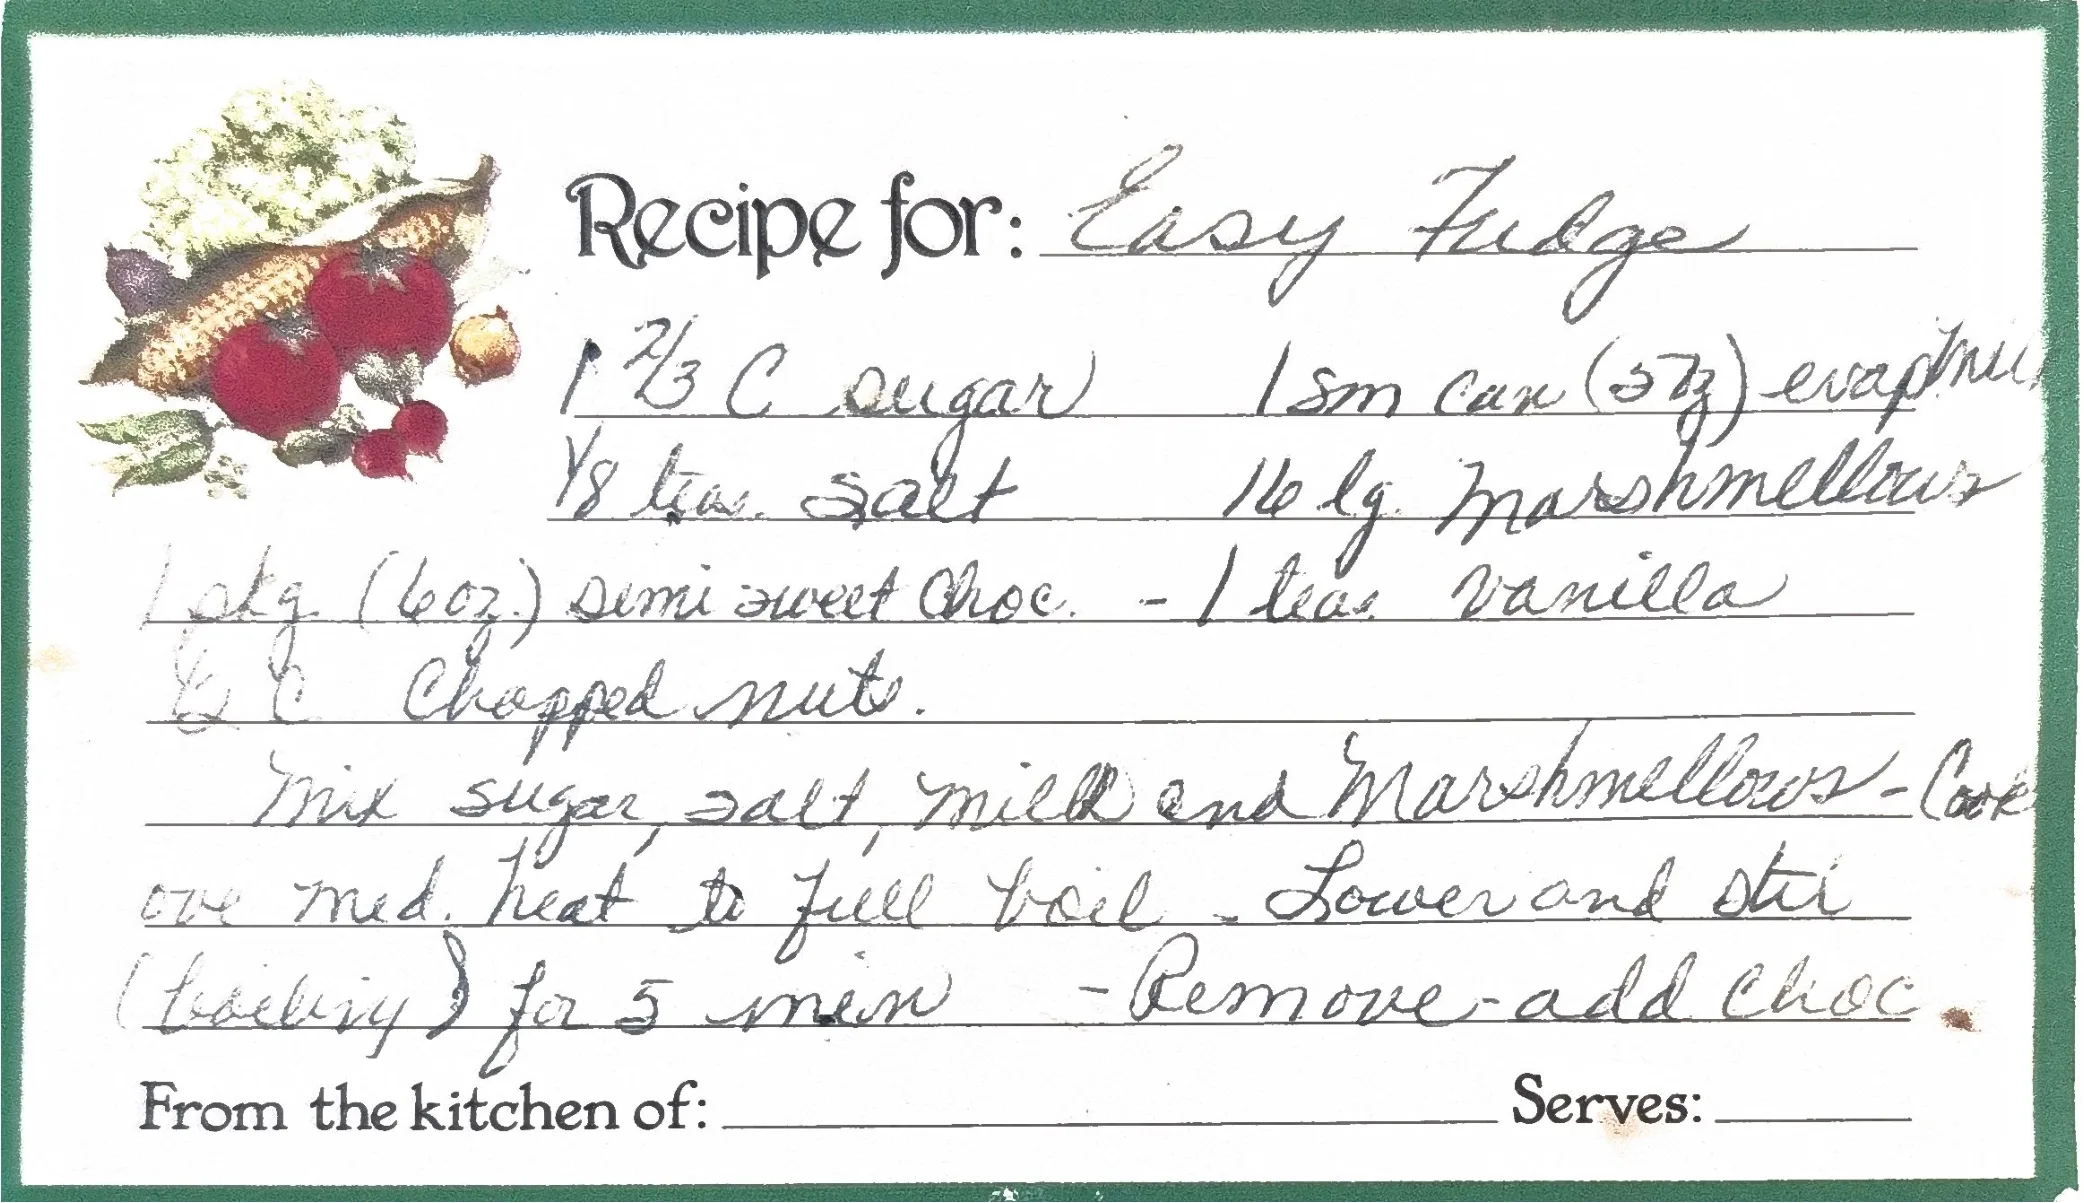 Recipe for: Easy Fudge
1 2/3 C sugar 1 sm can (5oz) evap mil
1/8 teas. salt 16 lg. Marshmellows
1 pkg. (6oz.) semi sweet Choc. - 1 teas. vanilla
1/2 C Chopped nuts.
Mix sugar, salt, milk and Marshmellows - Cook
ove med. heat to full boil - Lower and stir
(boiling) for 5 min - Remove - add choc
From the kitchen of: Serves: